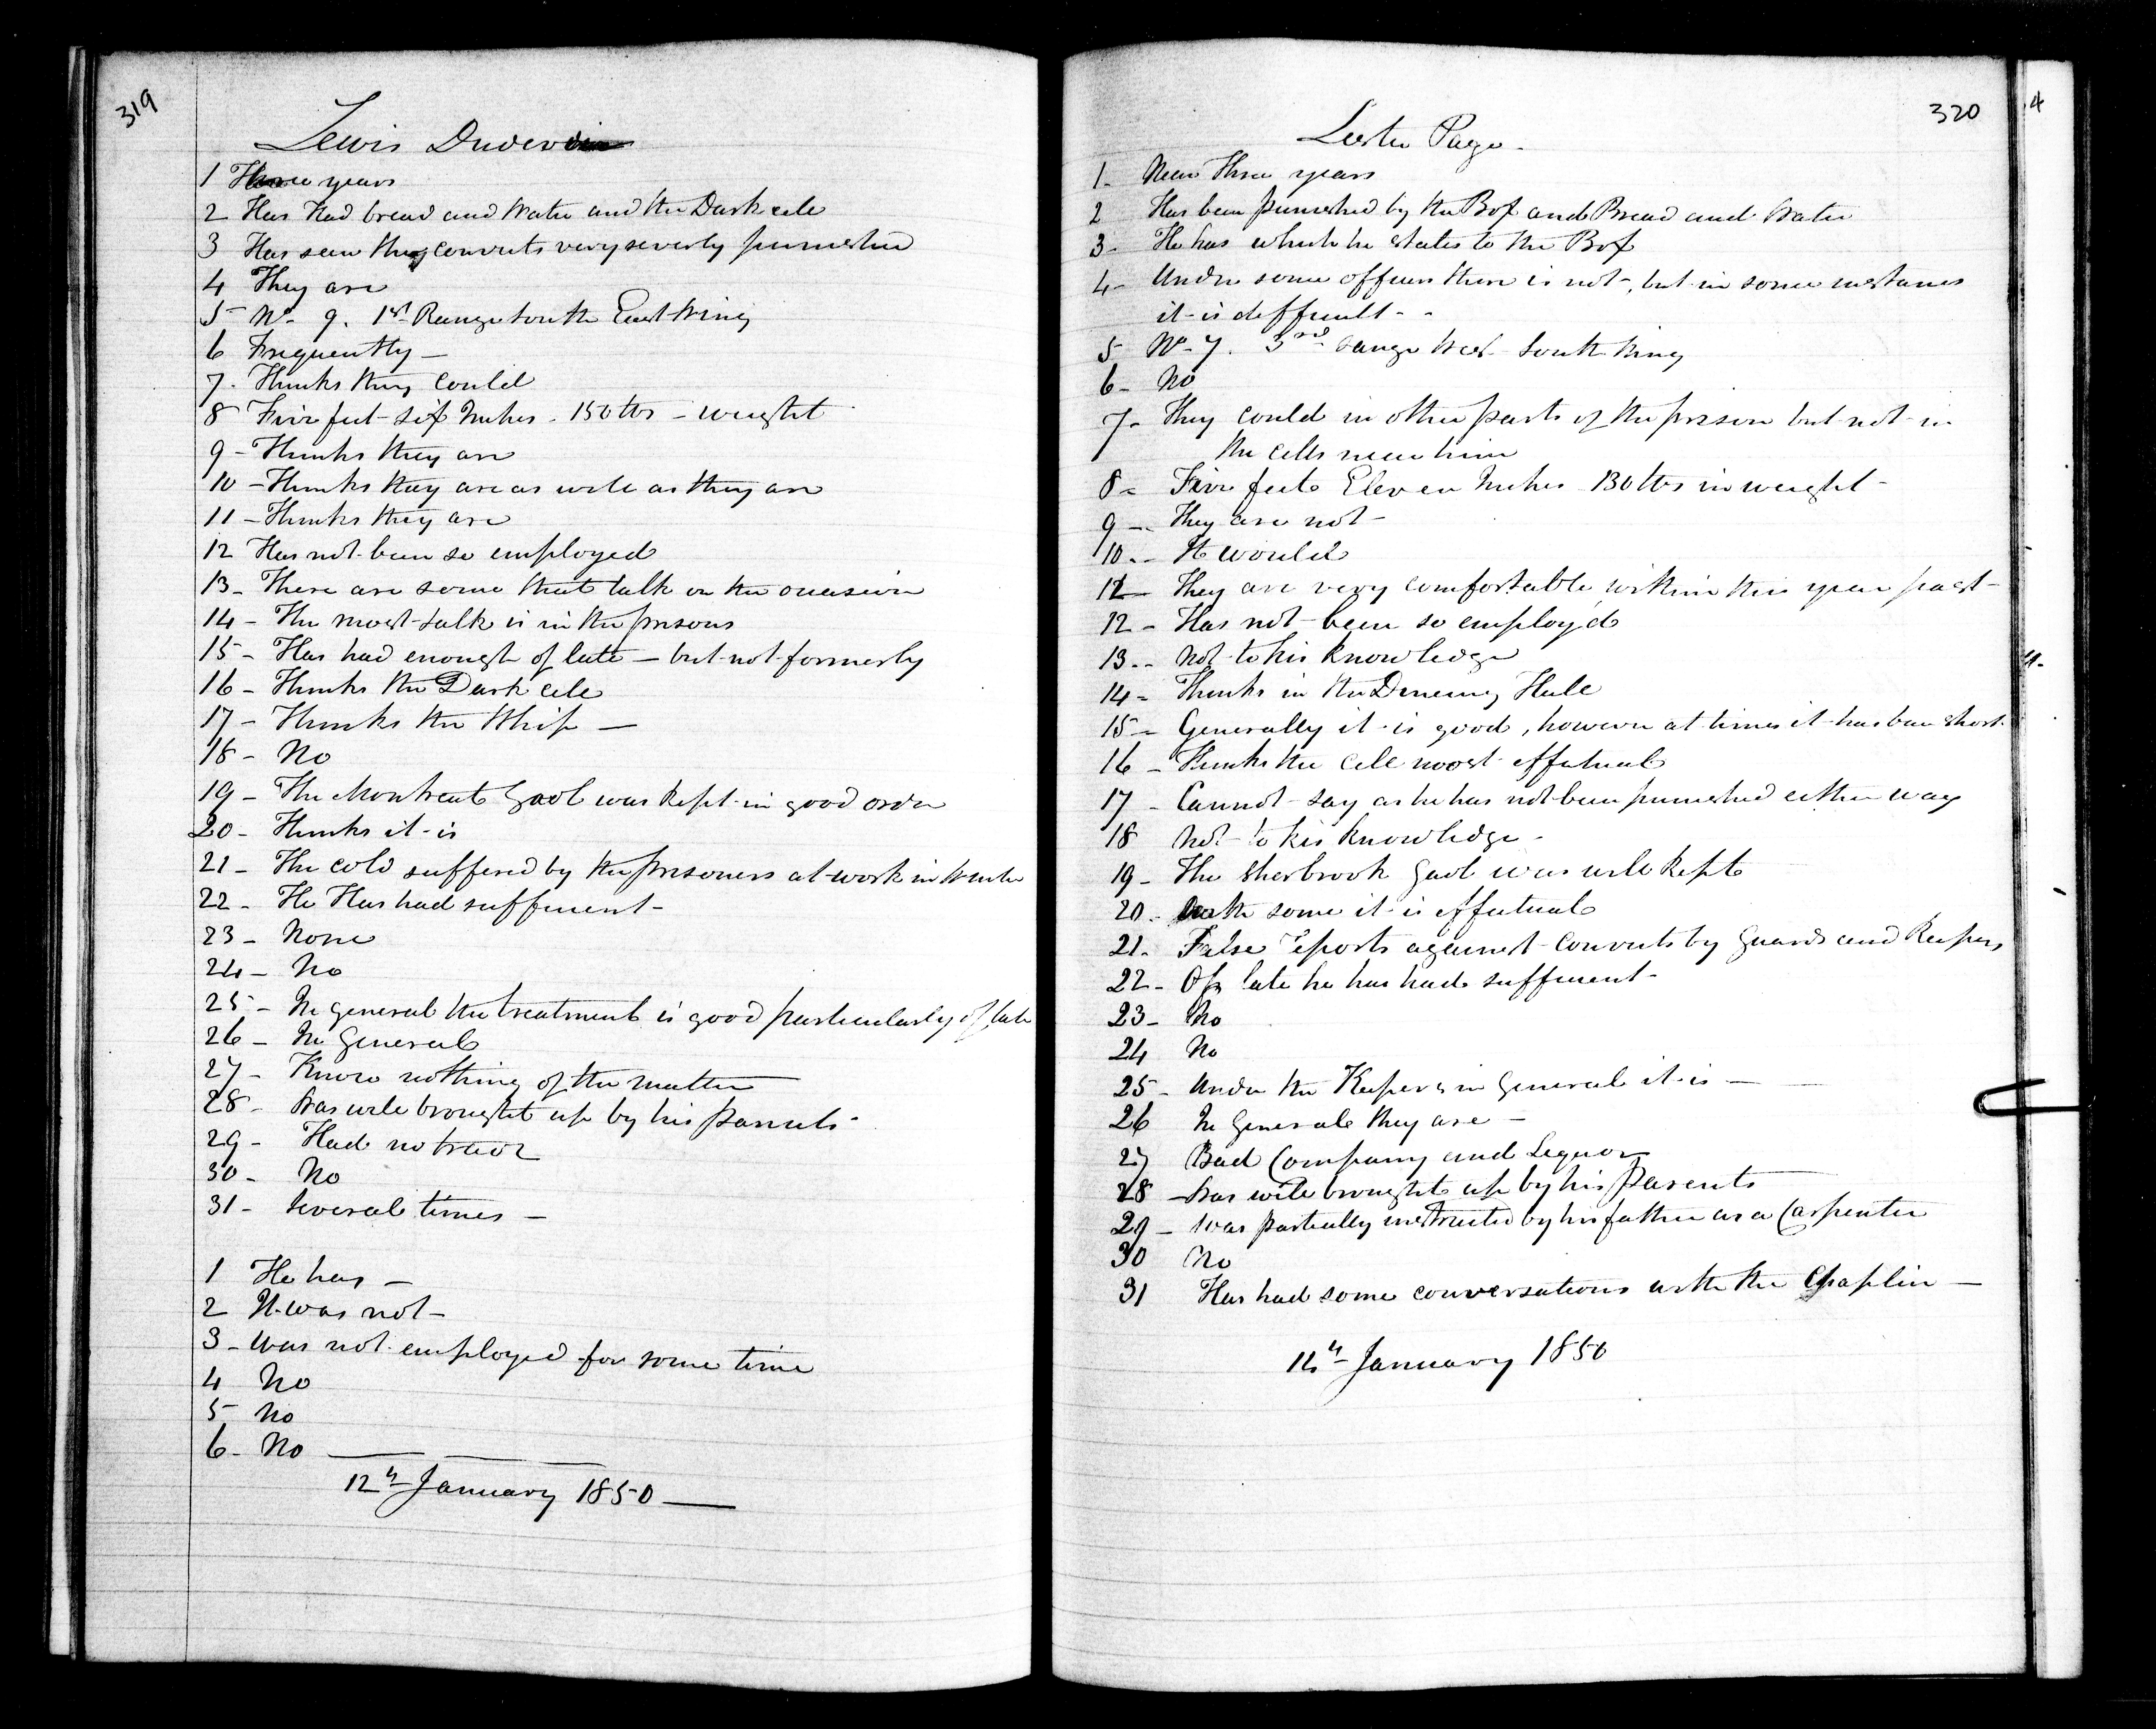 319
Lewis Duverdin
1 Three years
2 Has had bread and Water and the Dark cell
3 Has seen they convicts very severly punished
4 They are
5 No - 9. 1st Range South East Wing
6 Frequently -
7. Thinks they could
8 Five feet six Inches - 150 lbs - weight
9 - Thinks they are
10 - Thinks they are as well as they are
11 - Thinks they are
12 Has not been so employed
13 - There are some that talk on the occasion
14 - The most talk is in the prisons
15 - Has had enough of late - but not formerly
16 - Thinks the Dark cell
17 - Thinks the Whip -
18 - No
19 - The Montreal Gaol was kept in good order
20 - Thinks it is
21 - The cold suffered by the prisoners at work in Winter
22 - He Has had sufficient -
23 - None
24 - No
25 - In general the treatment is good particularly of late
26 - In General
27 - Know nothing of the matter
28 - Was well brought up by his parents -
29 - Had no trade
30 - No
31 - Several times -
1 He has -
2 It was not -
3 - Was not employed for some time
4 No
5 No
6 - No
12th January 1850
320
Lester Page -
1 - Near Three years
2 Has been punished by the Box and Bread and Water
3 - He has which he states to the Box
4 - Under some officers there is not -, but in some instances
it is difficult - -
5 No - 7. 3rd range West South Wing
6 - No
7 - They could in other parts of the prison but not in
the cells near him
8 - Five feet Eleven Inches 130 lbs in weight -
9 - They are not -
10 - It would
12 - They are very comfortable within this year past -
12 - Has not been so employ'd
13 - Not to his knowledge
14 - Thinks in the Dineing Hall
15 - Generally it is good, however at times it has been short.
16 - Thinks the cell most effectual
17 - Cannot say as he has not been punished either way
18 Not to his knowledge -
19 - The Sherbrook Gaol was well kept
20 - With some it is effectual
21 - False reports against convicts by Guards and Keepers
22 - Of late he has had sufficient -
23 - No
24 No
25 - Under the Keepers in General it is -
26 In General they are -
27 Bad Company and Liquor
28 - Was well brought up by his parents
29 - Was partially instructed by his father as a Carpenter
30 No
31 Has had some conversations with the Chaplin -
14th January 1850